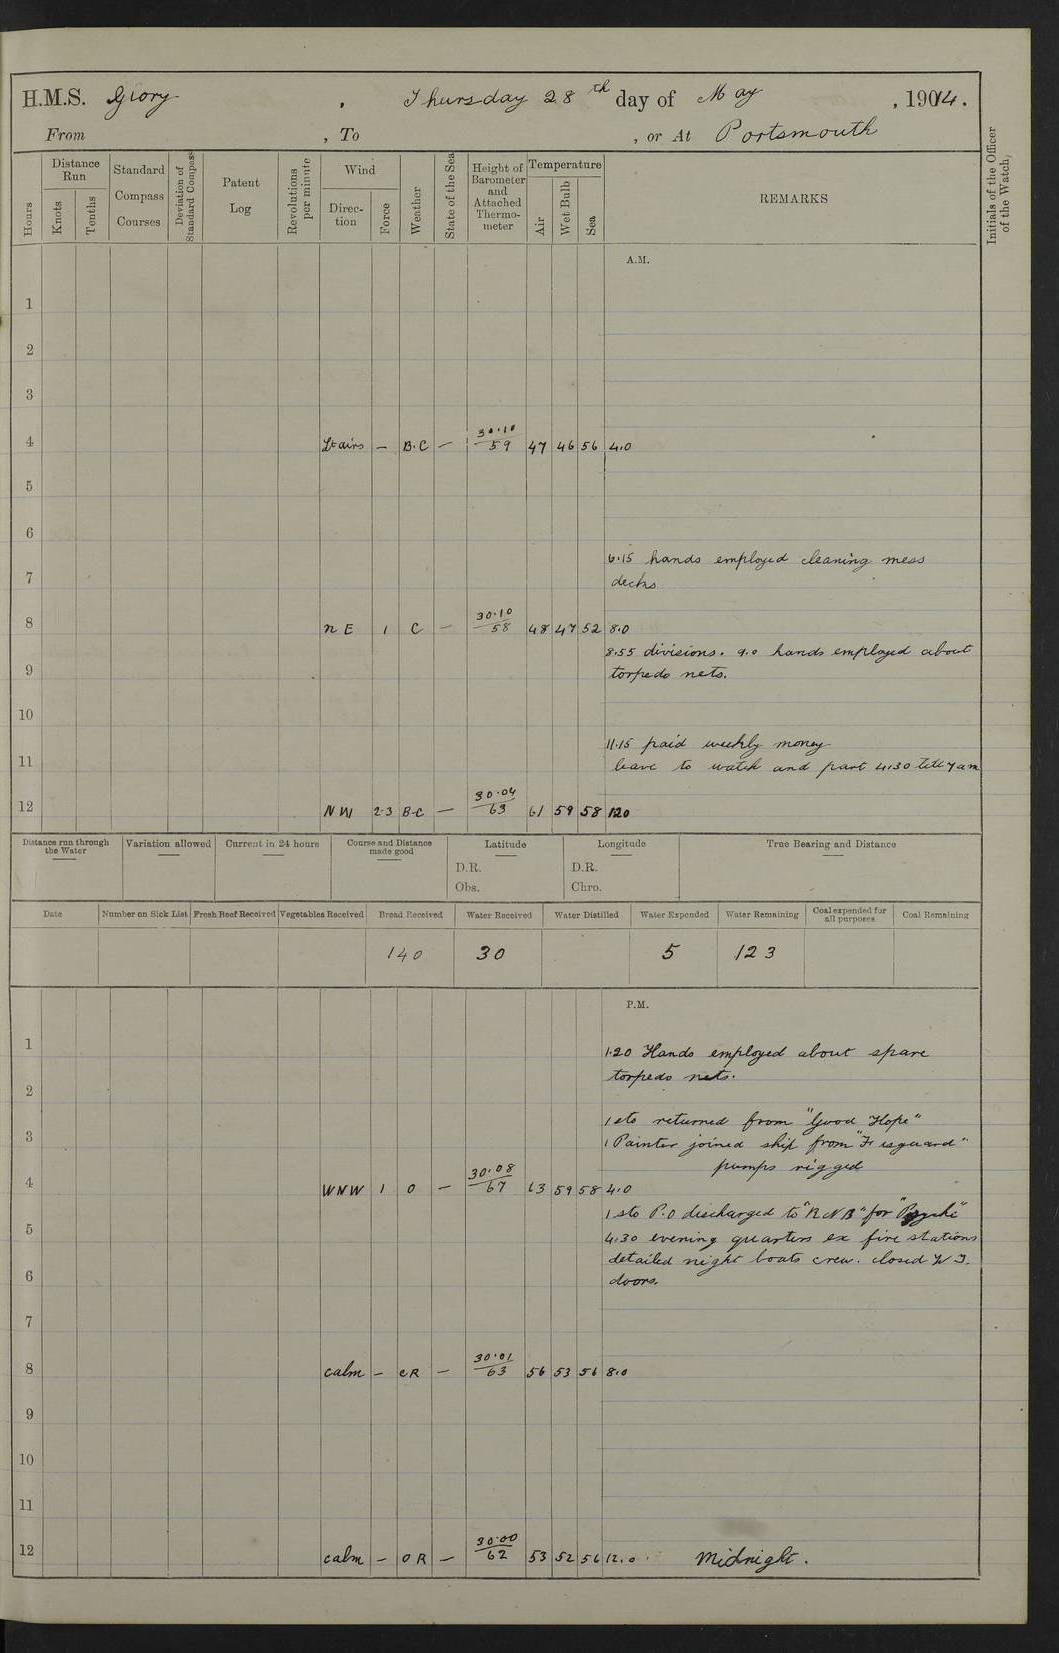 H.M.S. Glory , Thursday 28th day of May , 1914.
From , To , or At Portsmouth
Hours
Distance Run
Knots
Tenths
Standard Compass Courses
Deviation of Standard Compass
Patent Log
Revolutions per minute
Wind
Direction
Force
Weather
State of the Sea
Height of Barometer and Attached Thermometer
Temperature
Air
Wet Bulb
Sea
REMARKS
Initials of the Officer of the Watch,
A.M.
1
2
3
4 Lt airs – B.C – 30.10/59 47 46 56 4.0
5
6
6.15 hands employed cleaning mess
7 decks
8 N E 1 C – 30.10/58 48 47 52 8.0
8.55 divisions. 9.0 hands employed about
9 torpedo nets.
10
11.15 paid weekly money
11 leave to watch and part 4.30 till 7 am
12 N W 2-3 B-C – 30.04/63 61 59 58 120
Distance run through the Water
Variation allowed
Current in 24 hours
Course and Distance made good
Latitude
D.R.
Obs.
Longitude
D.R.
Chro.
True Bearing and Distance
Date Number on Sick List Fresh Beef Received Vegetables Received Bread Received Water Received Water Distilled Water Expended Water Remaining Coal expended for all purposes Coal Remaining
140 30 5 123
P.M.
1
1.20 Hands employed about spare
torpedo nets.
2
1 sto returned from "Good Hope"
3 1 Painter joined ship from "Fisguard"
pumps rigged
4 WNW 1 O – 30.08/67 63 59 58 4.0
1 sto P.O discharged to "R N B" for "Psyche"
5 4.30 evening quarters ex fire stations
detailed night boats crew. closed W T.
6 doors.
7
8 calm – c R – 30.01/63 56 53 56 8.0
9
10
11
12 calm – O R – 30.00/62 53 52 56 12.0 Midnight.